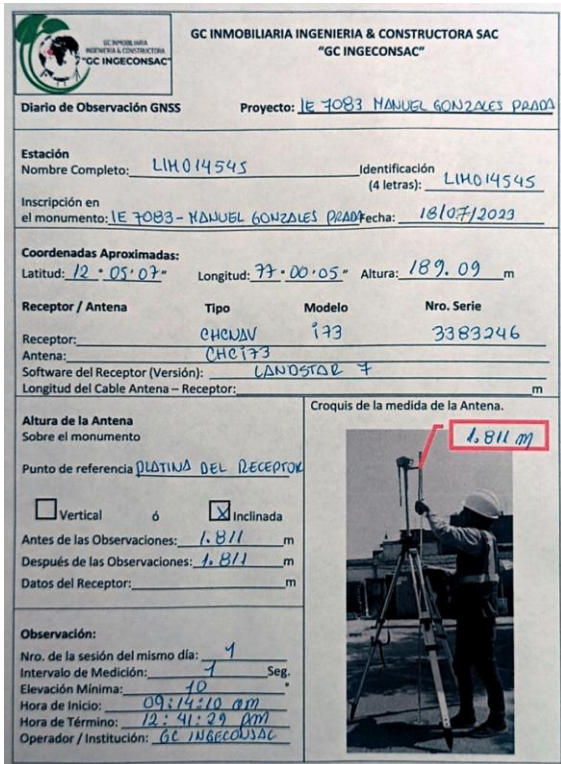 GC INMOBILIARIA
INGENIERIA & CONSTRUCTORA
"GC INGECONSAC"
GC INMOBILIARIA INGENIERIA & CONSTRUCTORA SAC
"GC INGECONSAC"
Diario de Observación GNSS Proyecto: IE 7083 MANUEL GONZALES PRADA
Estación
Nombre Completo: LIM014545 Identificación
(4 letras): LIM014545
Inscripción en
el monumento: IE 7083 - MANUEL GONZALES PRADA Fecha: 18/07/2023
Coordenadas Aproximadas:
Latitud: 12 ° 05' 07" Longitud: 77 ° 00' 05" Altura: 189.09 m
Receptor / Antena Tipo Modelo Nro. Serie
Receptor: CHCNAV i73 3383246
Antena: CHCi73
Software del Receptor (Versión): LANDSTAR 7
Longitud del Cable Antena – Receptor: m
Altura de la Antena
Sobre el monumento
Croquis de la medida de la Antena.
1.811 m
Punto de referencia PLATINA DEL RECEPTOR
Vertical ó X Inclinada
Antes de las Observaciones: 1.811 m
Después de las Observaciones: 1.811 m
Datos del Receptor: m
Observación:
Nro. de la sesión del mismo día: 1
Intervalo de Medición: 1 Seg.
Elevación Mínima: 10 °
Hora de Inicio: 09:14:10 am
Hora de Término: 12:41:29 PM
Operador / Institución: GC INGECONSAC